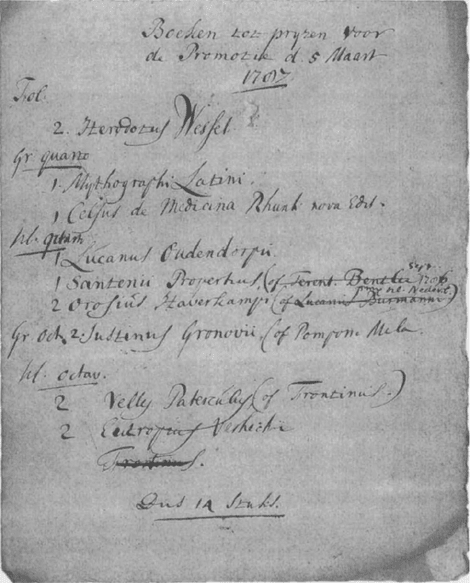 Boeken tot pryzen voor
de Promotie d. 5 Maart
1787
Fol.
2. Herodotus Wessel.
Gr quarto
1 Mythographi Latini.
1 Celsus de Medicina Rhunk nova Edit.
kl. qtum
1 Lucanus Oudendorpii
1 Santenii Propertius (of Terent. Bentlei
2 Orosius Haverkampi (of Lucanus Burmanni)
Gr Oct. 2. Justinus Gronovii, (of Pompon: Mela.
kl. octav.
2 Vellej Paterculus (of Frontinus.)
2 Eutropius Verheik
Frontinus.
Dus 14 stuks.